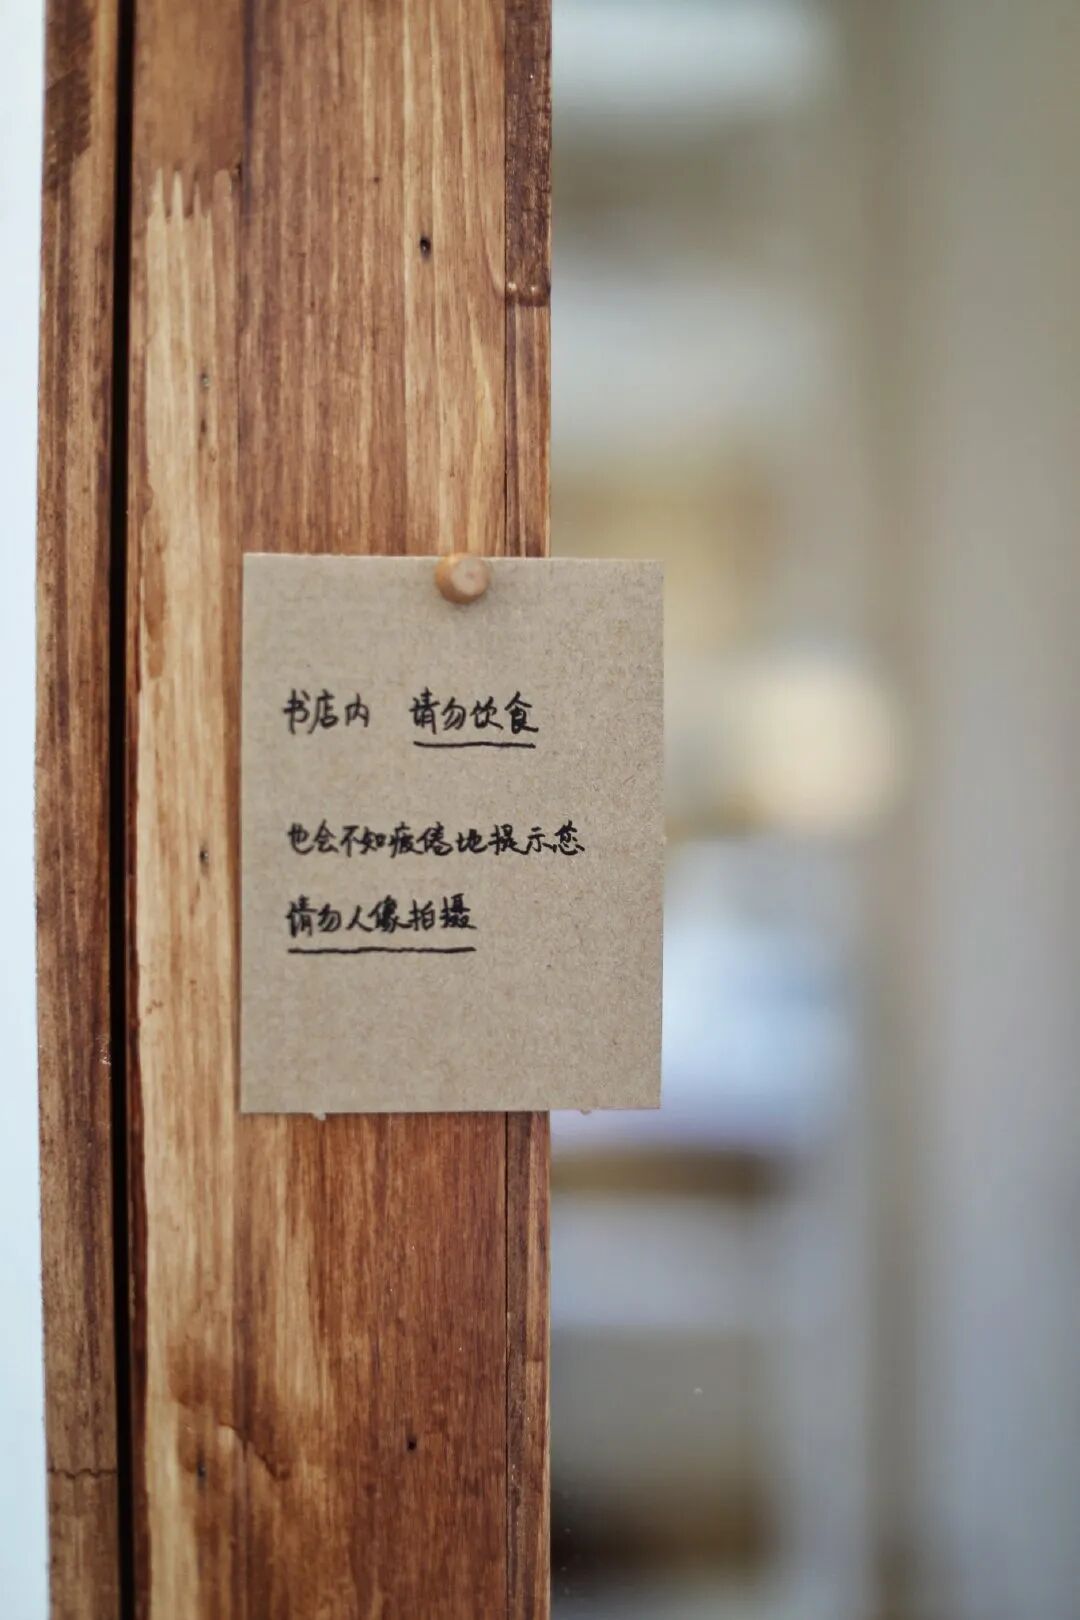 书店内 请勿饮食
也会不知疲倦地提示您
请勿人像拍摄